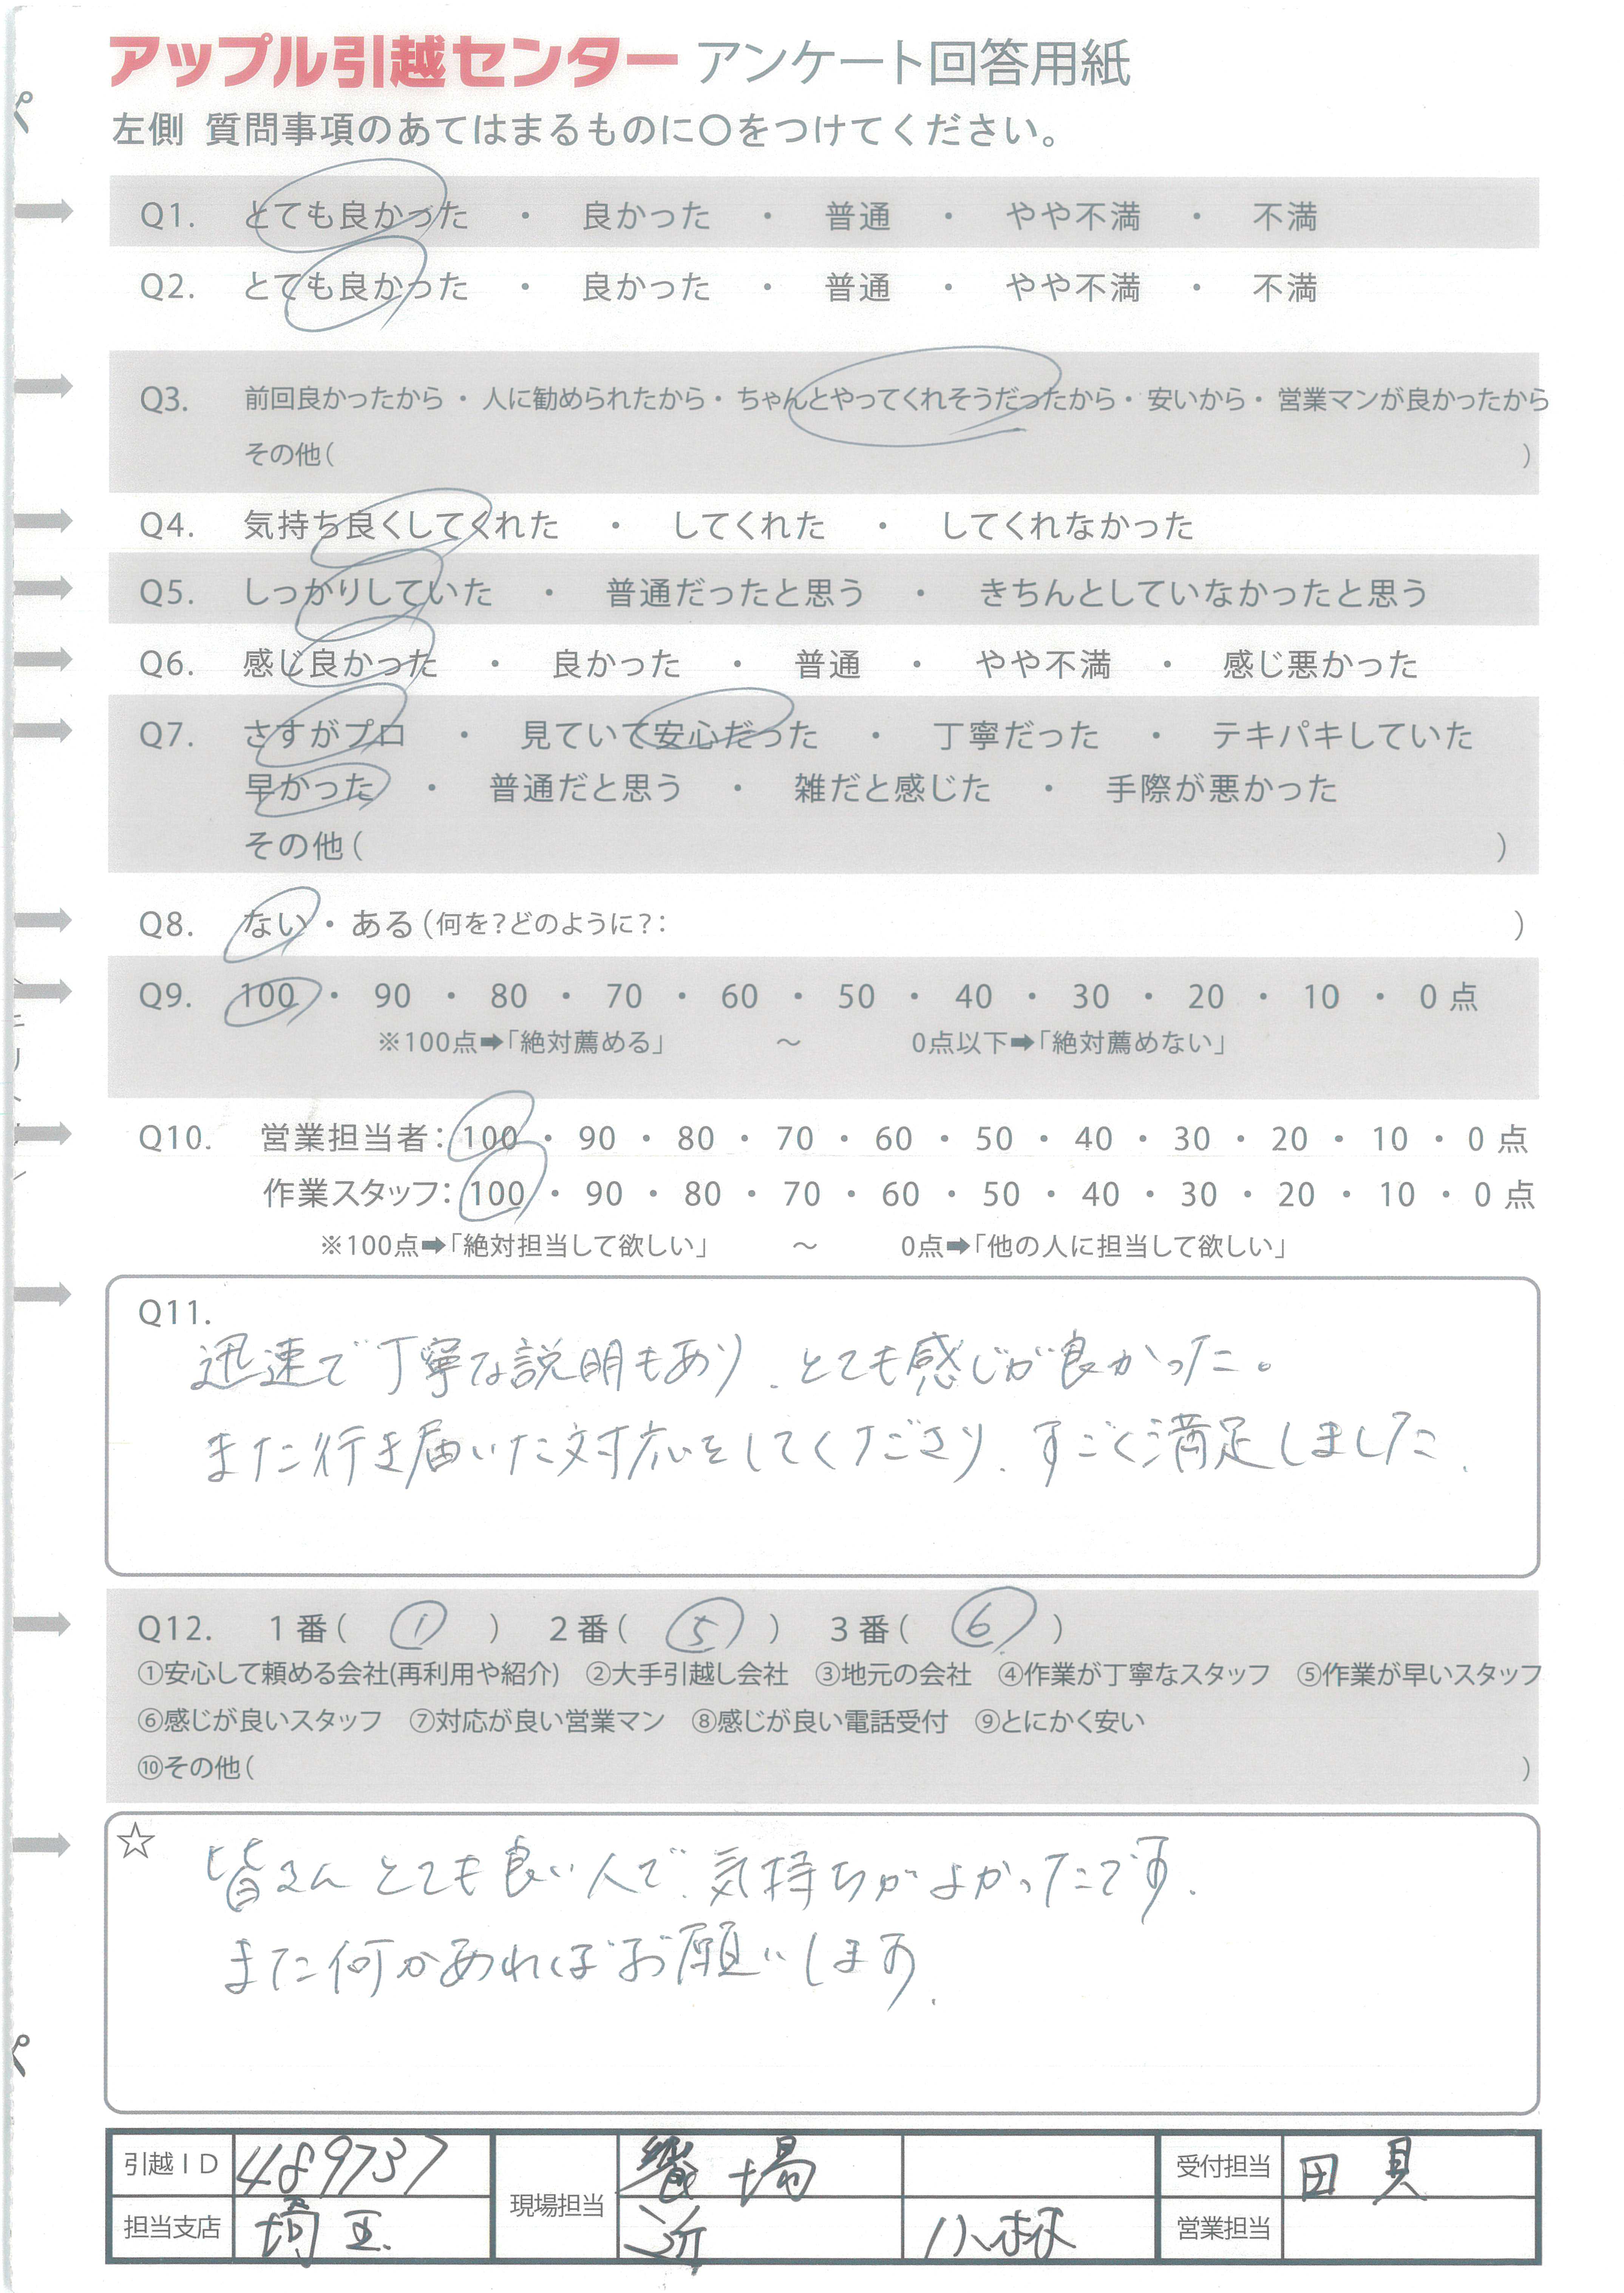 アップル引越センター アンケート回答用紙
左側 質問事項のあてはまるものに〇をつけてください。
Q1. とても良かった ・ 良かった ・ 普通 ・ やや不満 ・ 不満
Q2. とても良かった ・ 良かった ・ 普通 ・ やや不満 ・ 不満
Q3. 前回良かったから・人に勧められたから・ちゃんとやってくれそうだったから・安いから・営業マンが良かったから
その他( )
Q4. 気持ち良くしてくれた ・ してくれた ・ してくれなかった
Q5. しっかりしていた ・ 普通だったと思う ・ きちんとしていなかったと思う
Q6. 感じ良かった ・ 良かった ・ 普通 ・ やや不満 ・ 感じ悪かった
Q7. さすがプロ ・ 見ていて安心だった ・ 丁寧だった ・ テキパキしていた
早かった ・ 普通だと思う ・ 雑だと感じた ・ 手際が悪かった
その他( )
Q8. ない・ある(何を?どのように?: )
Q9. 100 ・ 90 ・ 80 ・ 70 ・ 60 ・ 50 ・ 40 ・ 30 ・ 20 ・ 10 ・ 0 点
※100点➡「絶対薦める」 〜 0点以下➡「絶対薦めない」
Q10. 営業担当者:100 ・ 90 ・ 80 ・ 70 ・ 60 ・ 50 ・ 40 ・ 30 ・ 20 ・ 10 ・ 0 点
作業スタッフ:100 ・ 90 ・ 80 ・ 70 ・ 60 ・ 50 ・ 40 ・ 30 ・ 20 ・ 10 ・ 0 点
※100点➡「絶対担当して欲しい」 〜 0点➡「他の人に担当して欲しい」
Q11.
迅速で丁寧な説明もあり、とても感じが良かった。
また行き届いた対応をしてくださり、すごく満足しました.
Q12. 1番( ① ) 2番( ⑤ ) 3番( ⑥ )
①安心して頼める会社(再利用や紹介) ②大手引越し会社 ③地元の会社 ④作業が丁寧なスタッフ ⑤作業が早いスタッフ
⑥感じが良いスタッフ ⑦対応が良い営業マン ⑧感じが良い電話受付 ⑨とにかく安い
⑩その他( )
☆ 皆さんとても良い人で、気持ちがよかったです.
また何かあればお願いします.
引越ID 489737 現場担当 饗場 受付担当 田貝
担当支店 埼玉 近 小林 営業担当